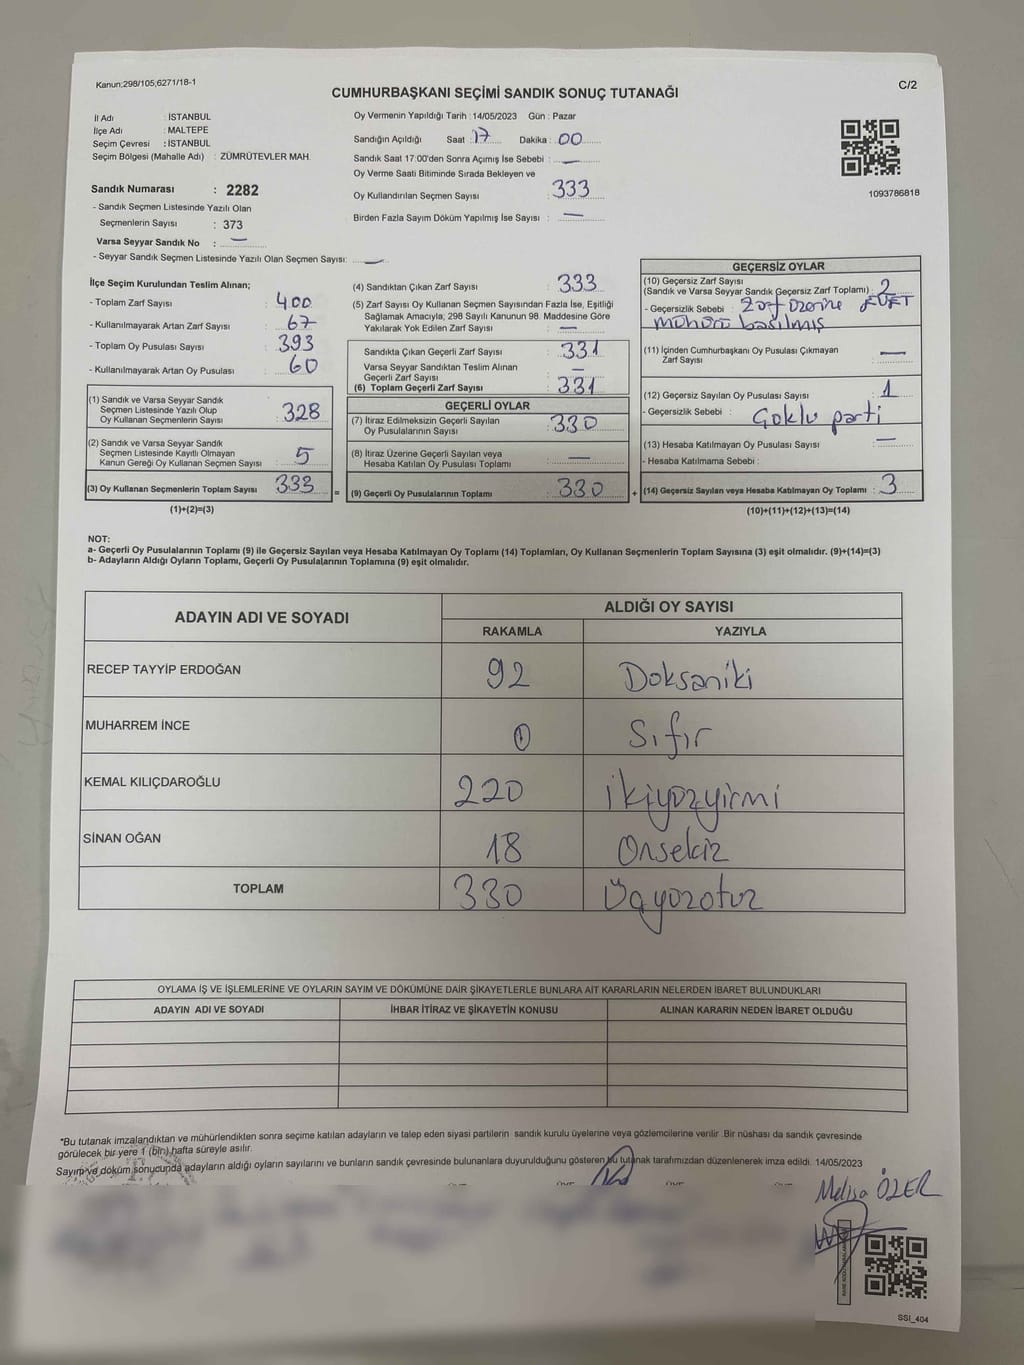 Kanun:298/105,6271/18-1
C/2
CUMHURBAŞKANI SEÇİMİ SANDIK SONUÇ TUTANAĞI
İl Adı : İSTANBUL
İlçe Adı : MALTEPE
Seçim Çevresi : İSTANBUL
Seçim Bölgesi (Mahalle Adı) : ZÜMRÜTEVLER MAH.
Sandık Numarası : 2282
- Sandık Seçmen Listesinde Yazılı Olan
Seçmenlerin Sayısı : 373
Varsa Seyyar Sandık No : —
- Seyyar Sandık Seçmen Listesinde Yazılı Olan Seçmen Sayısı: —
Oy Vermenin Yapıldığı Tarih : 14/05/2023 Gün : Pazar
Sandığın Açıldığı Saat : 17 Dakika : 00
Sandık Saat 17:00'den Sonra Açımış İse Sebebi : —
Oy Verme Saati Bitiminde Sırada Bekleyen ve
Oy Kullandırılan Seçmen Sayısı : 333
Birden Fazla Sayım Döküm Yapılmış İse Sayısı : —
1093786818
İlçe Seçim Kurulundan Teslim Alınan;
- Toplam Zarf Sayısı : 400
- Kullanılmayarak Artan Zarf Sayısı : 67
- Toplam Oy Pusulası Sayısı : 393
- Kullanılmayarak Artan Oy Pusulası : 60
(1) Sandık ve Varsa Seyyar Sandık
Seçmen Listesinde Yazılı Olup
Oy Kullanan Seçmenlerin Sayısı : 328
(2) Sandık ve Varsa Seyyar Sandık
Seçmen Listesinde Kayıtlı Olmayan
Kanun Gereği Oy Kullanan Seçmen Sayısı : 5
(3) Oy Kullanan Seçmenlerin Toplam Sayısı : 333
(1)+(2)=(3)
(4) Sandıktan Çıkan Zarf Sayısı : 333
(5) Zarf Sayısı Oy Kullanan Seçmen Sayısından Fazla İse, Eşitliği
Sağlamak Amacıyla; 298 Sayılı Kanunun 98. Maddesine Göre
Yakılarak Yok Edilen Zarf Sayısı : —
Sandıkta Çıkan Geçerli Zarf Sayısı : 331
Varsa Seyyar Sandıktan Teslim Alınan
Geçerli Zarf Sayısı : —
(6) Toplam Geçerli Zarf Sayısı : 331
GEÇERLİ OYLAR
(7) İtiraz Edilmeksizin Geçerli Sayılan
Oy Pusulalarının Sayısı : 330
(8) İtiraz Üzerine Geçerli Sayılan veya
Hesaba Katılan Oy Pusulası Toplamı : —
= (9) Geçerli Oy Pusulalarının Toplamı : 330 +
GEÇERSİZ OYLAR
(10) Geçersiz Zarf Sayısı
(Sandık ve Varsa Seyyar Sandık Geçersiz Zarf Toplamı) : 2
- Geçersizlik Sebebi : Zarf üzerine EVET
mührü basılmış
(11) İçinden Cumhurbaşkanı Oy Pusulası Çıkmayan
Zarf Sayısı : —
(12) Geçersiz Sayılan Oy Pusulası Sayısı : 1
- Geçersizlik Sebebi : Çoklu parti
(13) Hesaba Katılmayan Oy Pusulası Sayısı : —
- Hesaba Katılmama Sebebi :
(14) Geçersiz Sayılan veya Hesaba Katılmayan Oy Toplamı : 3
(10)+(11)+(12)+(13)=(14)
NOT:
a- Geçerli Oy Pusulalarının Toplamı (9) ile Geçersiz Sayılan veya Hesaba Katılmayan Oy Toplamı (14) Toplamları, Oy Kullanan Seçmenlerin Toplam Sayısına (3) eşit olmalıdır. (9)+(14)=(3)
b- Adayların Aldığı Oyların Toplamı, Geçerli Oy Pusulalarının Toplamına (9) eşit olmalıdır.
ADAYIN ADI VE SOYADI ALDIĞI OY SAYISI
RAKAMLA YAZIYLA
RECEP TAYYİP ERDOĞAN 92 Doksaniki
MUHARREM İNCE 0 Sıfır
KEMAL KILIÇDAROĞLU 220 ikiyüzyirmi
SİNAN OĞAN 18 Onsekiz
TOPLAM 330 Üçyüzotuz
OYLAMA İŞ VE İŞLEMLERİNE VE OYLARIN SAYIM VE DÖKÜMÜNE DAİR ŞİKAYETLERLE BUNLARA AİT KARARLARIN NELERDEN İBARET BULUNDUKLARI
ADAYIN ADI VE SOYADI İHBAR İTİRAZ VE ŞİKAYETİN KONUSU ALINAN KARARIN NEDEN İBARET OLDUĞU
*Bu tutanak imzalandıktan ve mühürlendikten sonra seçime katılan adayların ve talep eden siyasi partilerin sandık kurulu üyelerine veya gözlemcilerine verilir .Bir nüshası da sandık çevresinde
görülecek bir yere 1 (bir) hafta süreyle asılır.
Sayım ve döküm sonucunda adayların aldığı oyların sayılarını ve bunların sandık çevresinde bulunanlara duyurulduğunu gösteren bu tutanak tarafımızdan düzenlenerek imza edildi. 14/05/2023
Melisa ÖZER
SSİ_404